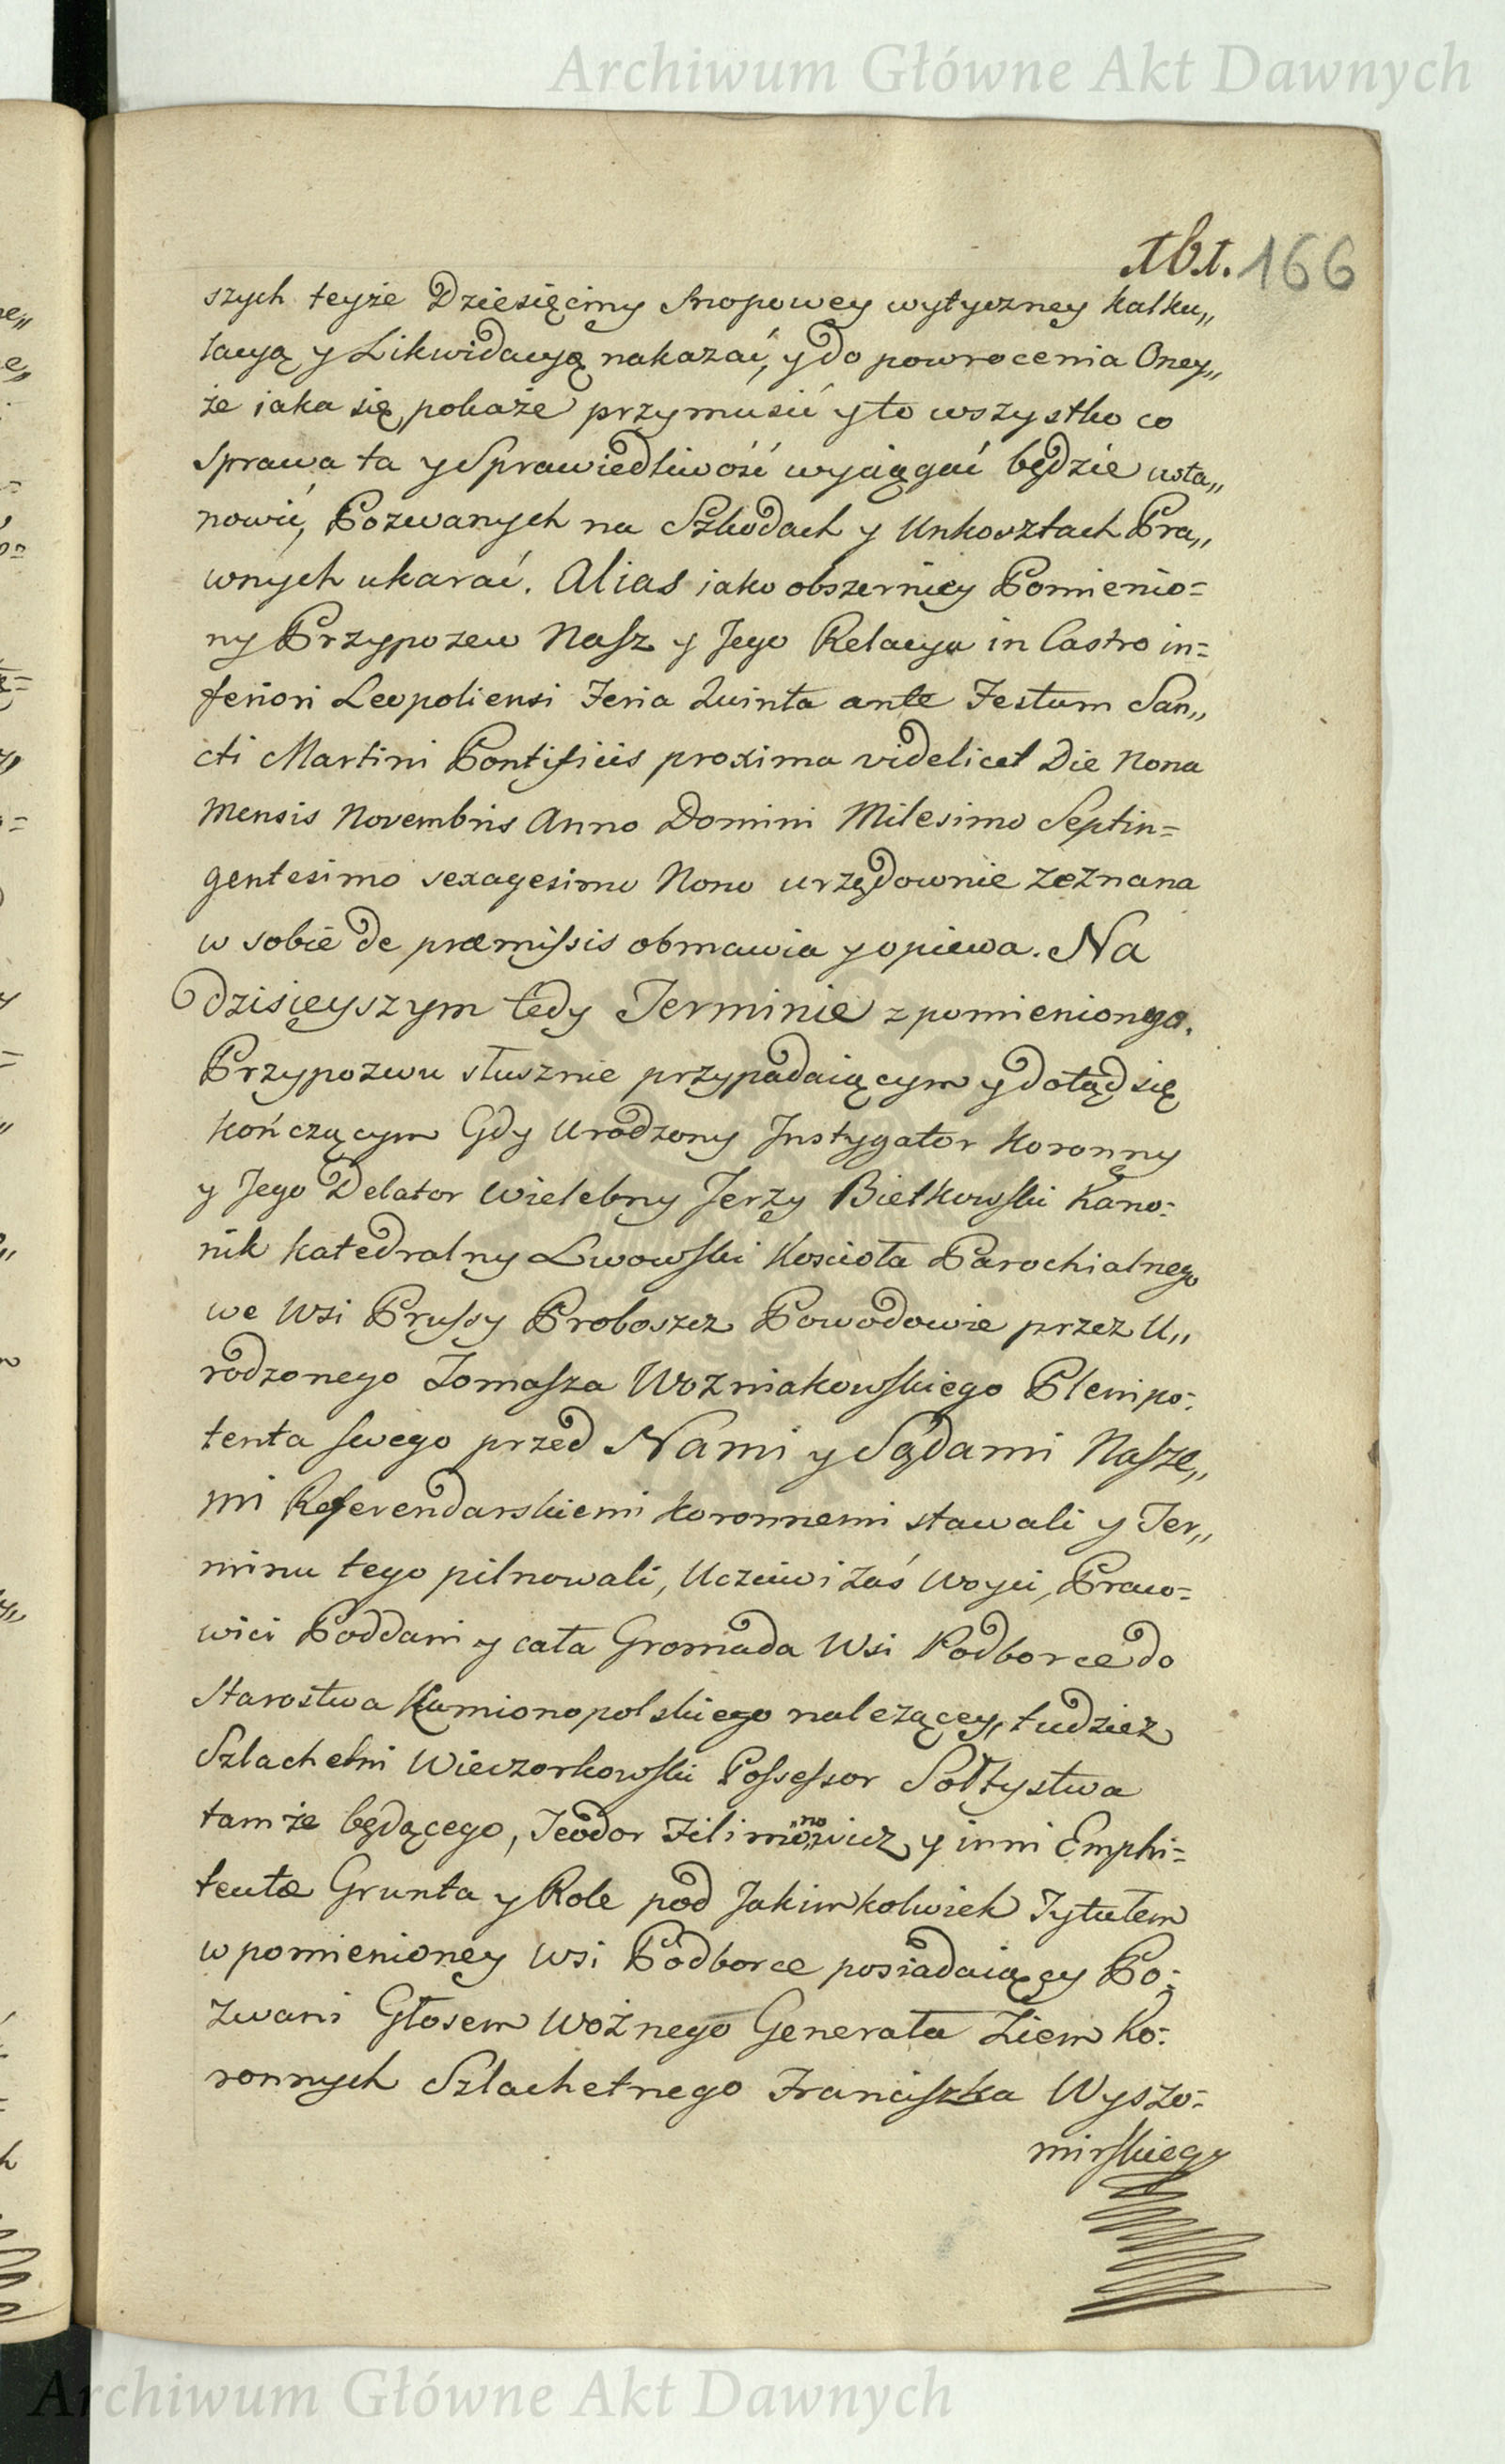 Archiwum Główne Akt Dawnych
161. 166
szych teyże Dziesięciny Snopowey wytyczney kalku„
lacyą y Likwidacyą nakazać, y do powrocenia Oney„
że iaka się pokaże przymusić y to wszystko co
Sprawa ta y Sprawiedliwość wyciągać będzie usta„
nowić, Pozwanych na Szkodach y Unkosztach Pra„
wnych ukarać. Alias jako obszerniey Pomienio=
ny Przypozew Nasz y Jego Relacya in Castro in=
feriori Leopoliensi Feria Quinta ante Festum San„
cti Martini Pontificis proxima videlicet Die Nona
Mensis Novembris Anno Domini Milesimo Septin=
gentesimo sexagesimo Nono urzędownie zeznana
w sobie de præmissis obmawia y opiewa. Na
dzisieyszym tedy Terminie z pomienionego
Przypozwu słusznie przypadaiącym y dotąd się
kończącym Gdy Urodzony Instygator Koronny
y Jego Delator Wielebny Jerzy Bielkowski Kano:
nik katedralny Lwowski Kościoła Parochialnego
we Wsi Prussy Proboszcz Powodowie przez U„
rodzonego Tomasza Wozniakowskiego Plenipo:
tenta swego przed Nami y Sądami Nasze„
mi Referendarskiemi Koronnemi stawali y Ter„
minu tego pilnowali, Uczciwi zaś Woyci, Praco=
wici Poddani y cała Gromada Wsi Podborce do
Starostwa Kamionopolskiego należącey, tudzież
Szlachetni Wieczorkowski Possessor Sołtystwa
tamże będącego, Teodor Filimonowicz y inni Emphi=
teutæ Grunta y Role pod Jakimkolwiek Tytułem
w pomienioney Wsi Podborce posiadaiący Po:
zwani Głosem Woźnego Generała Ziem Ko:
ronnych Szlachetnego Franciszka Wyszo:
mirskiego
Archiwum Główne Akt Dawnych